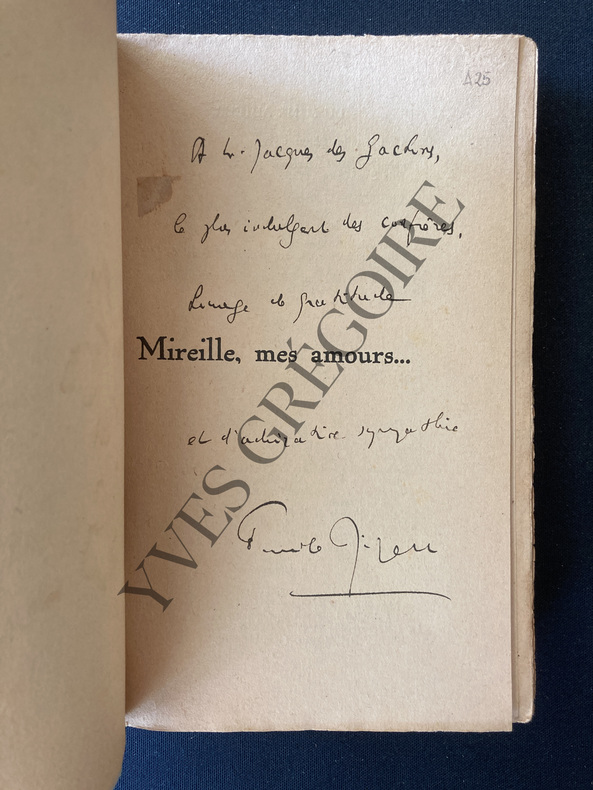 A25
A M. Jacques des Gachons,
le plus indulgent des confrères,
hommage de gratitude
Mireille, mes amours...
et d'admirative sympathie
Emile Ripert
YVES GRÉGOIRE